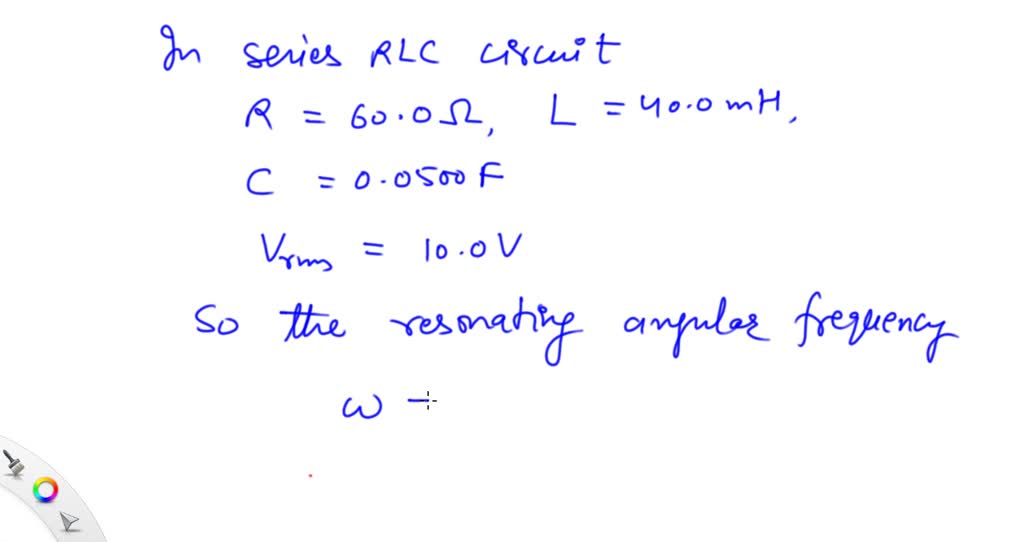 In series RLC circuit
R = 60.0Ω, L = 40.0mH,
C = 0.0500F
Vrms = 10.0V
So the resonating angular frequency
ω -